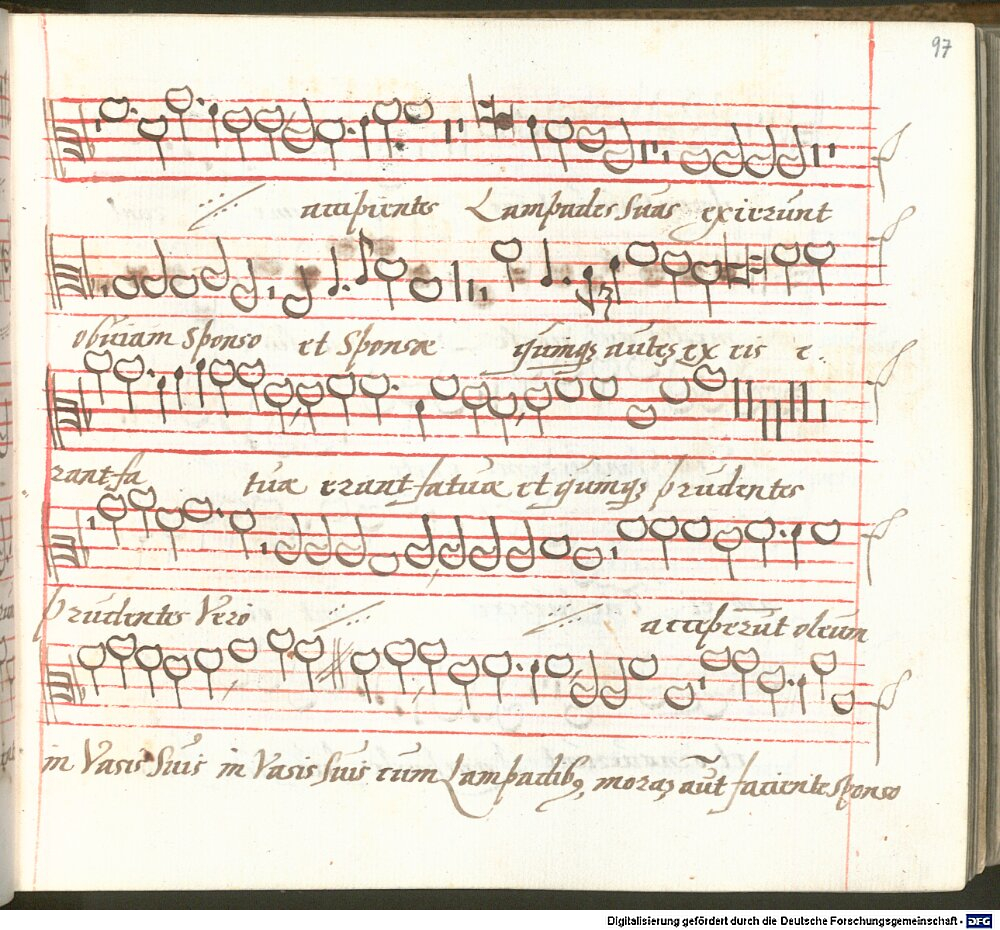 97
accipientes Lampades suas exierunt
obuiam Sponso et Sponsæ quinqȝ autēȝ ex eis e.
rant fa tuæ erant fatuæ et quinqȝ prudentes
prudentes Vero acceperūt oleum
in Vasis Suis in Vasis Suis cum Lampadibꝰ, moraȝ aūt faciente Sponso
Digitalisierung gefördert durch die Deutsche Forschungsgemeinschaft - DFG